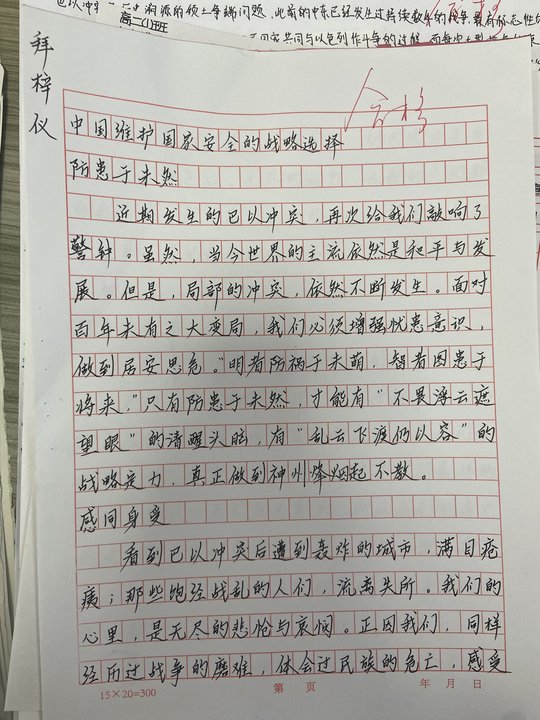 高一(1)班
拜梓仪
合格
中国维护国家安全的战略选择
防患于未然
近期发生的巴以冲突，再次给我们敲响了
警钟。虽然，当今世界的主流依然是和平与发
展。但是，局部的冲突，依然不断发生。面对
百年未有之大变局，我们必须增强忧患意识，
做到居安思危。"明者防祸于未萌，智者图患于
将来，"只有防患于未然，才能有"不畏浮云遮
望眼"的清醒头脑，有"乱云飞渡仍以容"的
战略定力，真正做到神州烽烟起不散。
感同身受
看到巴以冲突后遭到轰炸的城市，满目疮
痍；那些饱经战乱的人们，流离失所。我们的
心里，是无尽的悲怆与哀悯。正因我们，同样
经历过战争的磨难，体会过民族的危亡，感受
15×20=300 第 页 年 月 日